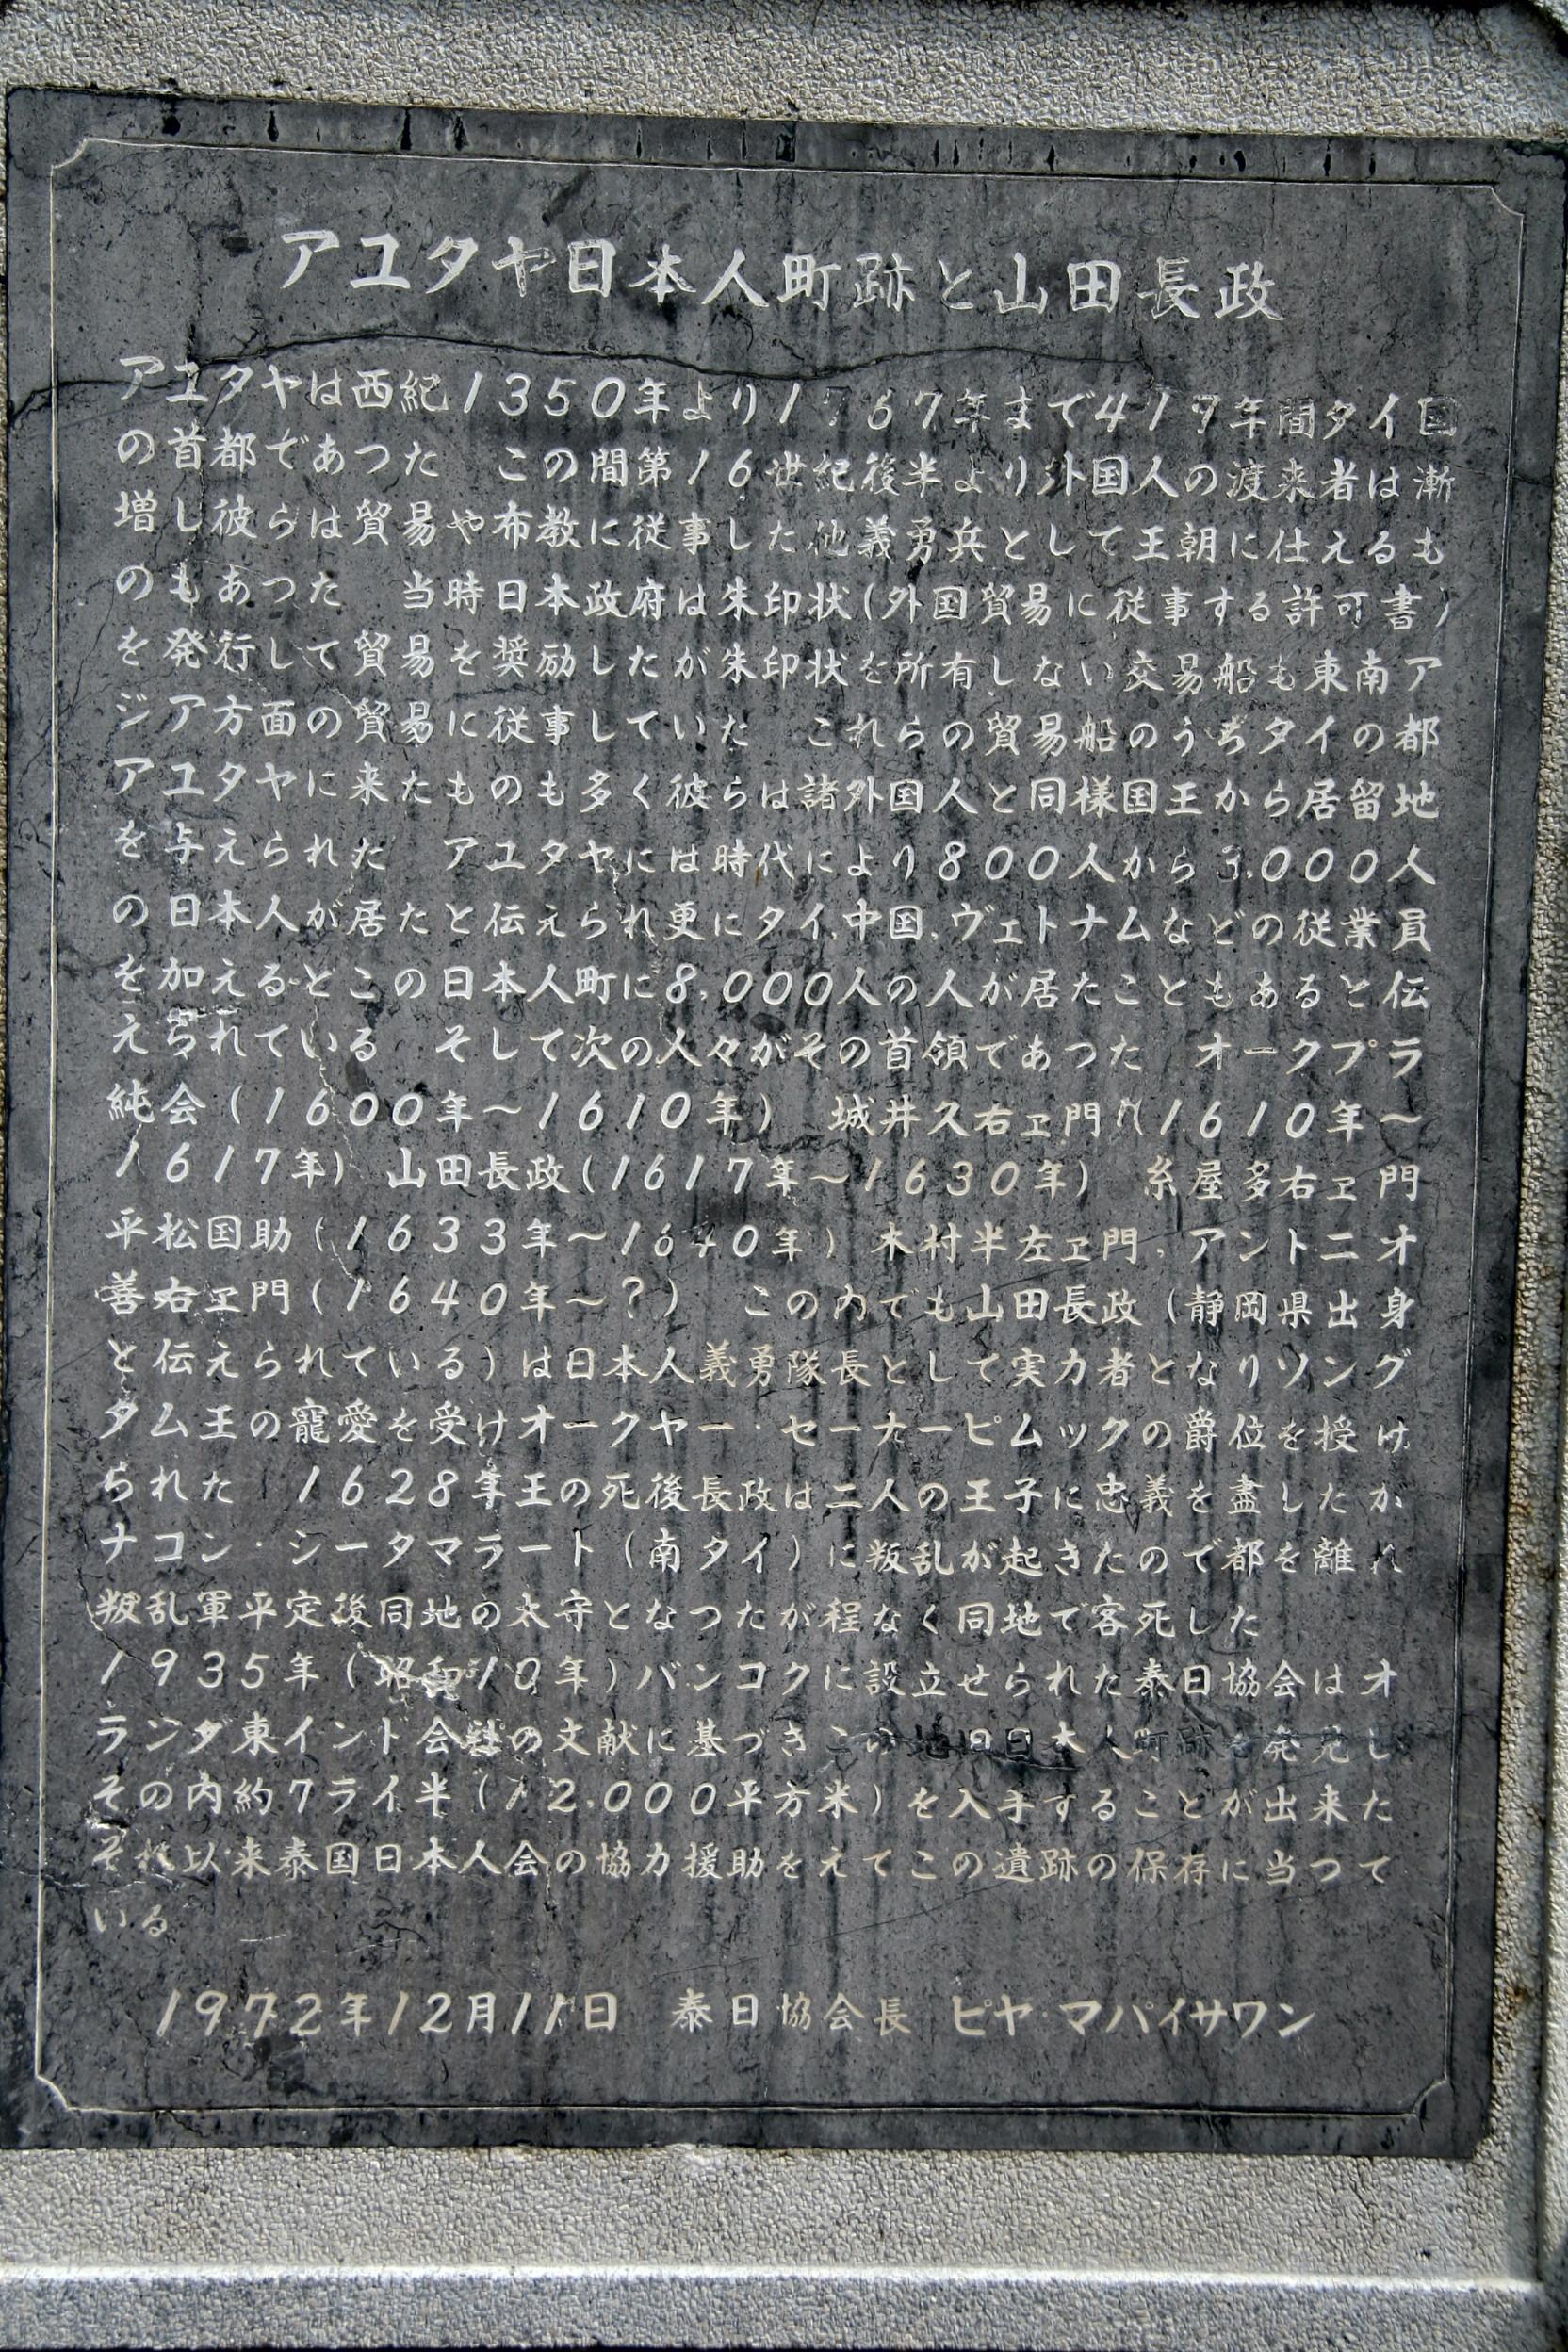 アユタヤ日本人町跡と山田長政
アユタヤは西紀1350年より1767年まで417年間タイ国
の首都であつた この間第16世紀後半より外国人の渡来者は漸
増し彼らは貿易や布教に従事した他義勇兵として王朝に仕えるも
のもあつた 当時日本政府は朱印状(外国貿易に従事する許可書)
を発行して貿易を奨励したが朱印状を所有しない交易船も東南ア
ジア方面の貿易に従事していた これらの貿易船のうちタイの都
アユタヤに来たものも多く彼らは諸外国人と同様国王から居留地
を与えられた アユタヤには時代により800人から3.000人
の日本人が居たと伝えられ更にタイ,中国,ヴェトナムなどの従業員
を加えるとこの日本人町に8,000人の人が居たこともあると伝
えられている そして次の人々がその首領であつた オークプラ
純会(1600年～1610年) 城井久右ヱ門(1610年～
1617年) 山田長政(1617年～1630年) 糸屋多右ヱ門
平松国助(1633年～1640年) 木村半左ヱ門,アントニオ
善右ヱ門(1640年～?) この内でも山田長政(静岡県出身
と伝えられている)は日本人義勇隊長として実力者となりソング
タム王の寵愛を受けオークヤー・セーナーピムックの爵位を授け
られた 1628年王の死後長政は二人の王子に忠義を盡したが
ナコン・シータマラート(南タイ)に叛乱が起きたので都を離れ
叛乱軍平定後同地の太守となつたが程なく同地で客死した
1935年(昭和10年)バンコクに設立せられた泰日協会はオ
ランダ東イント会社の文献に基づきこの地に日本人町跡を発見し
その内約7ライ半(12,000平方米)を入手することが出来た
それ以来泰国日本人会の協力援助をえてこの遺跡の保存に当つて
いる
1972年12月11日 泰日協会長 ピヤ・マハパイサワン